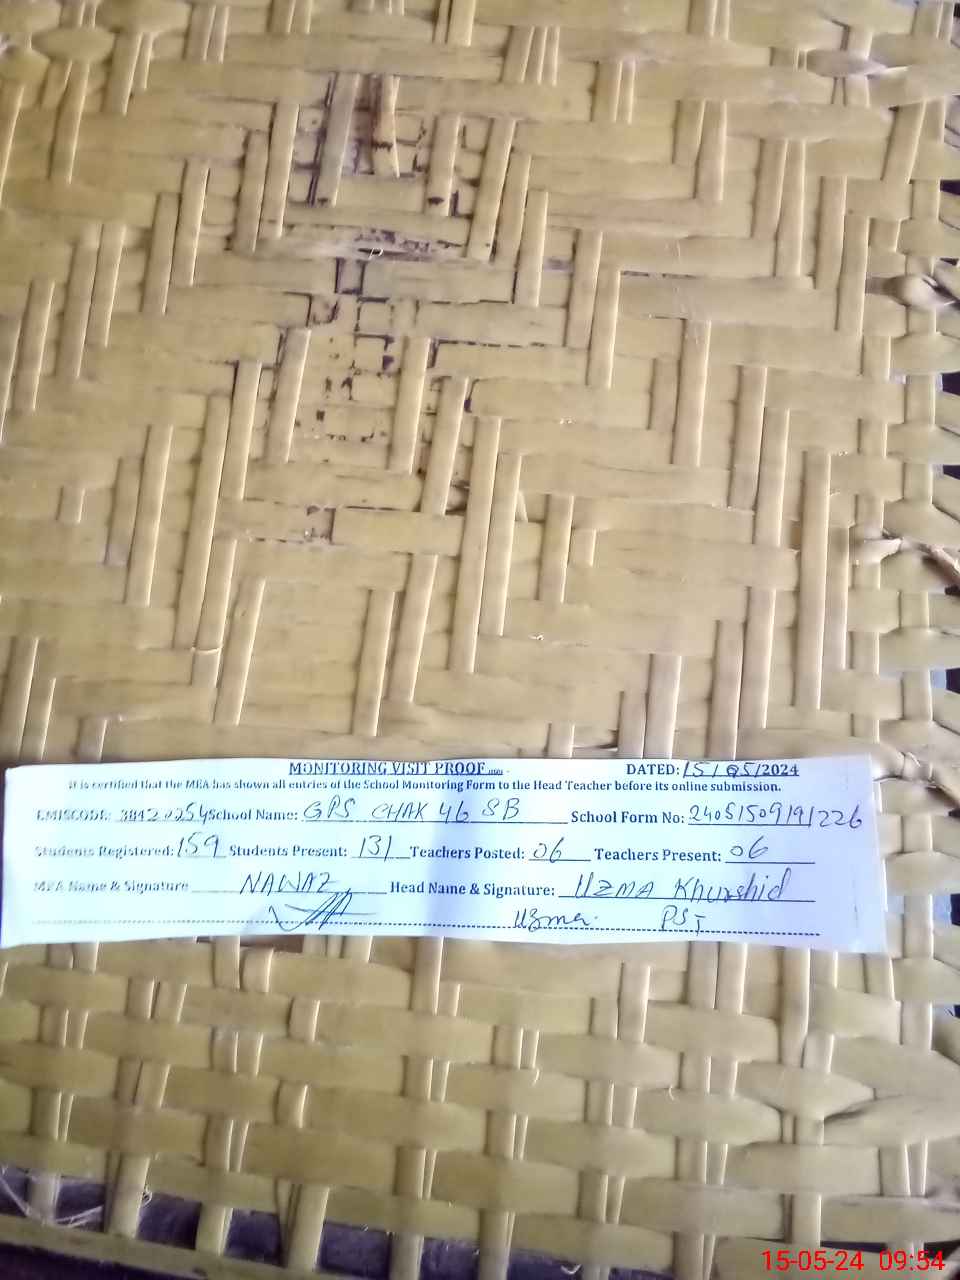 MONITORING VISIT PROOF DATED: 15/05/2024
It is certified that the MEA has shown all entries of the School Monitoring Form to the Head Teacher before its online submission.
EMISCODE: 38420254 School Name: GPS CHAK 46 SB School Form No: 24051509191226
Students Registered: 159 Students Present: 131 Teachers Posted: 06 Teachers Present: 06
MEA Name & Signature NAWAZ Head Name & Signature: UZMA Khurshid
Uzma. PST
15-05-24 09:54